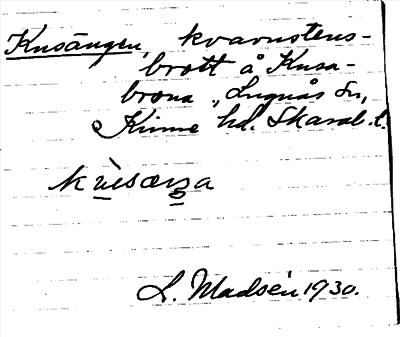 Knsängen, kvarnstens-
brott å Knsa-
brona, Lugnås sn,
Kinne hd. Skarab. l.
L. Madsén 1930.